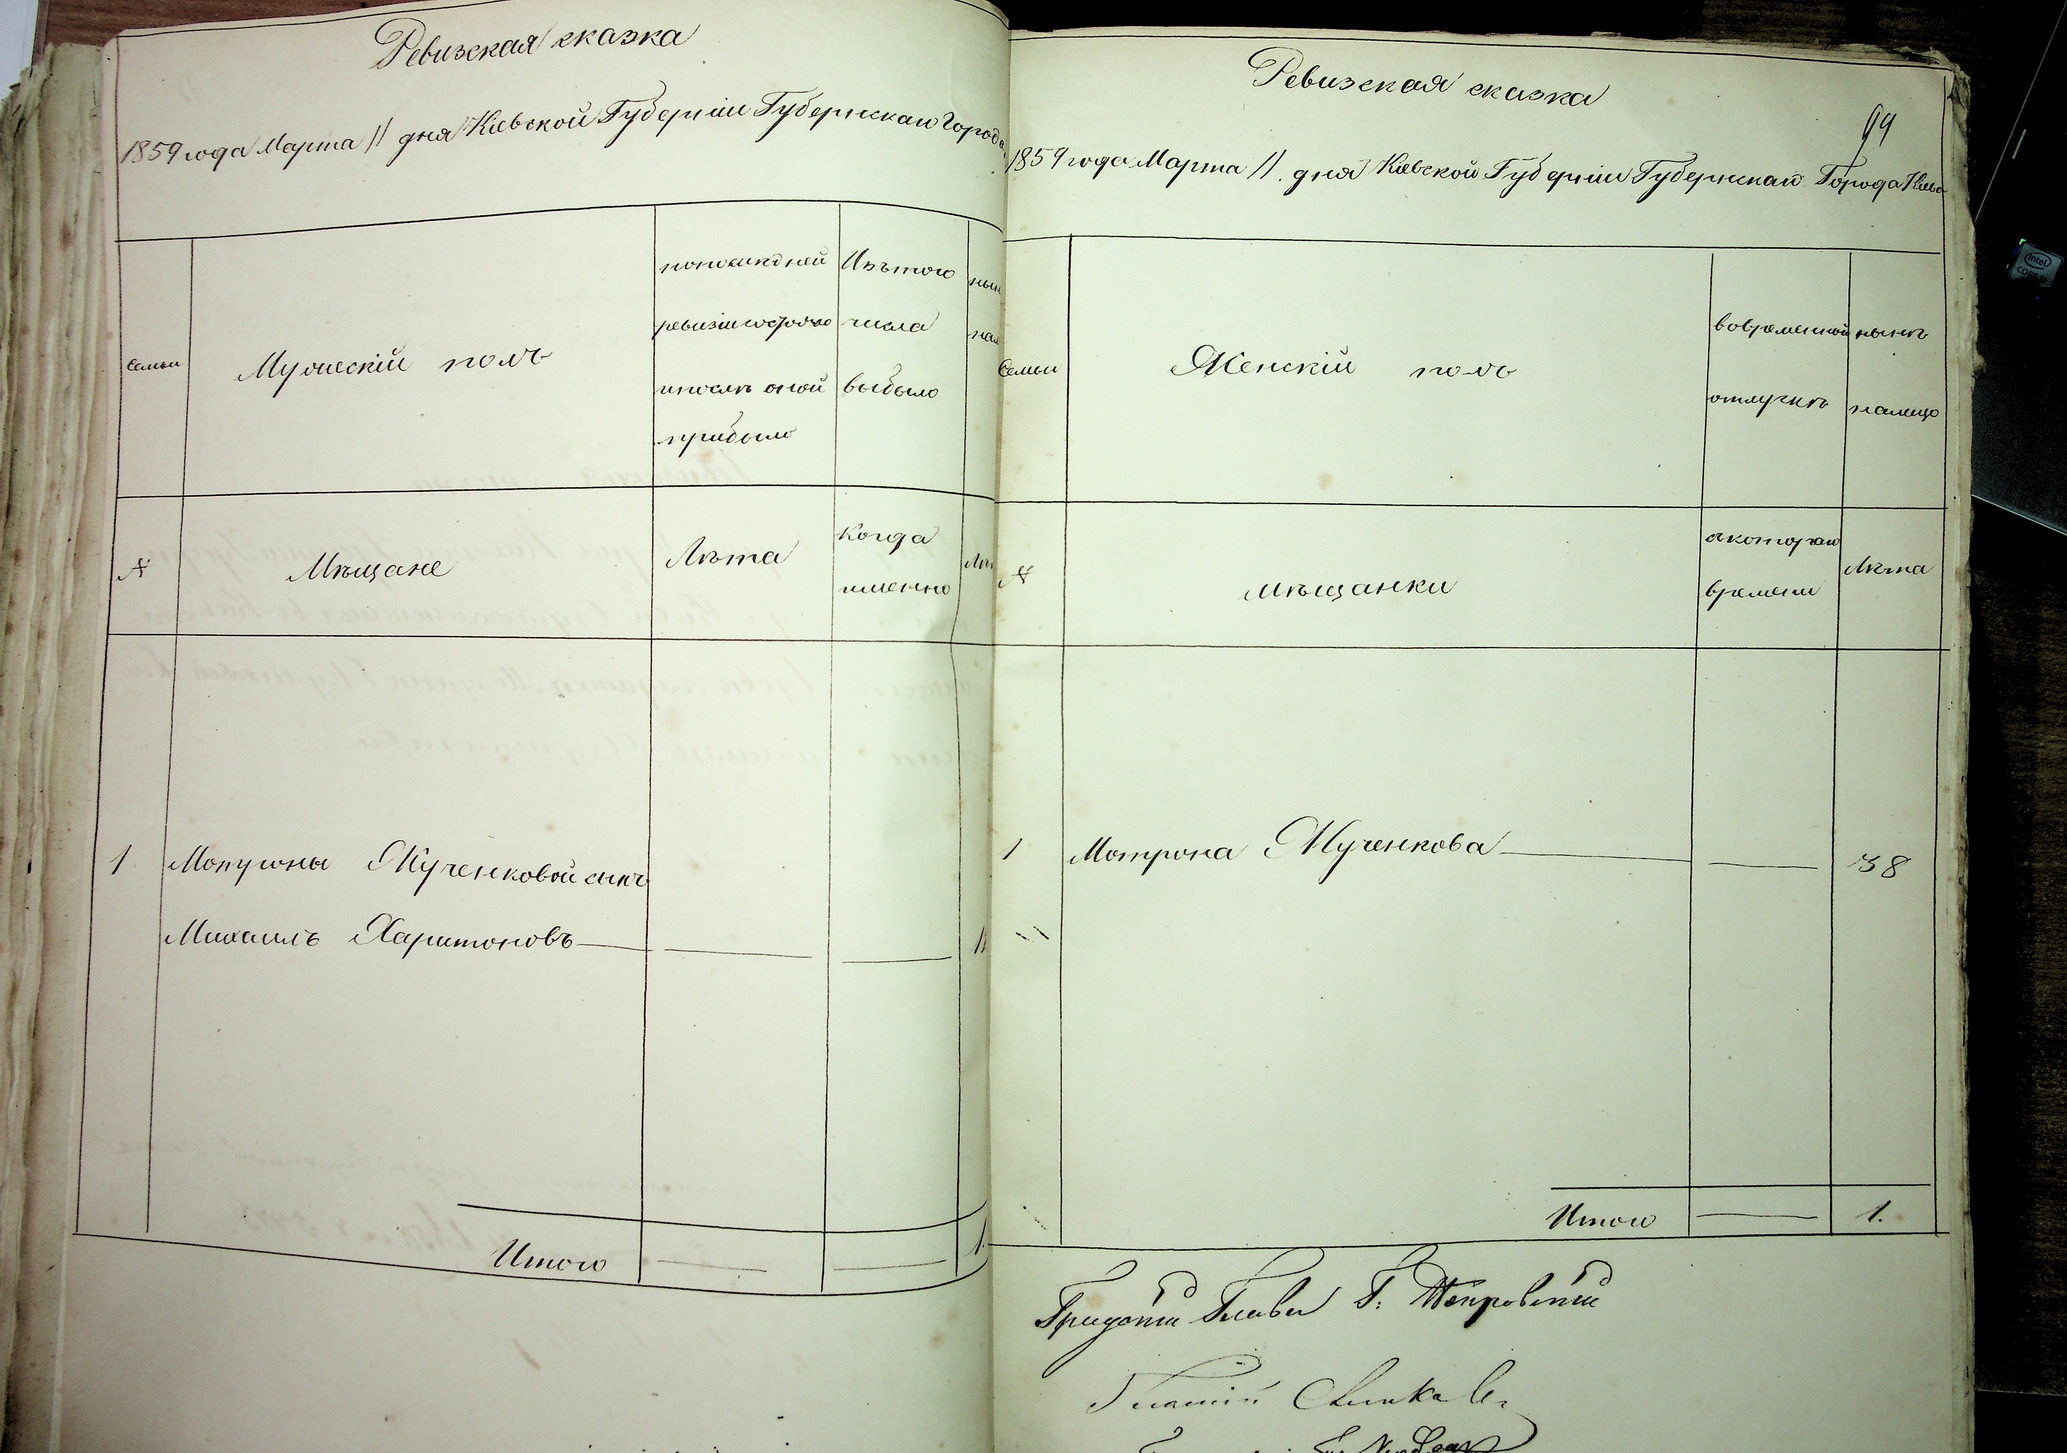 Ревизская сказка
1859 года Марта 11 дня Кіевской Губерніи Губернскаго Города
Семьи
Мужескій полъ
попослѣдней
ревизіи состояло
ипослѣ оной
прибыло
Изътого
числа
выбыло
№
Мѣщане
Лѣта
Когда
именно
1
Мотроны Жученковой сынъ
Михаилъ Харитоновъ
11
Итого
1.
Ревизская сказка
99
1859 года Марта 11. дня Кіевской Губерніи Губернскаго Города Кіева
Семьи
Женскій полъ
вовременной
отлучкѣ
нынѣ
налицо
№
мѣщанки
скотораго
времени
Лѣта
1
Мотрона Жученкова
38
Итого
1.
Intel
CORE